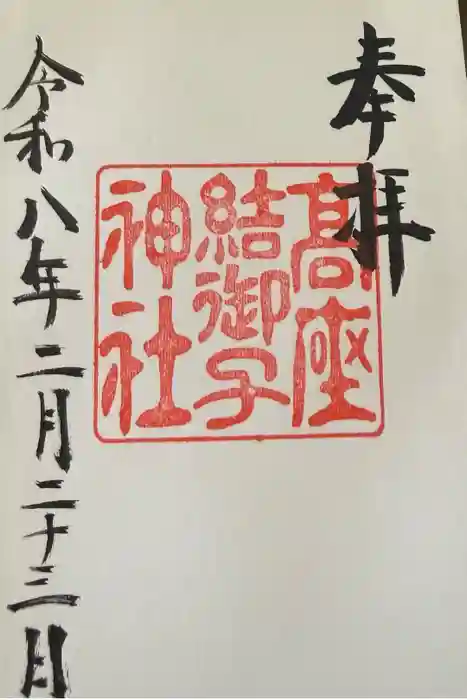 奉拝
高座
結御子
神社
令和八年二月二十三日